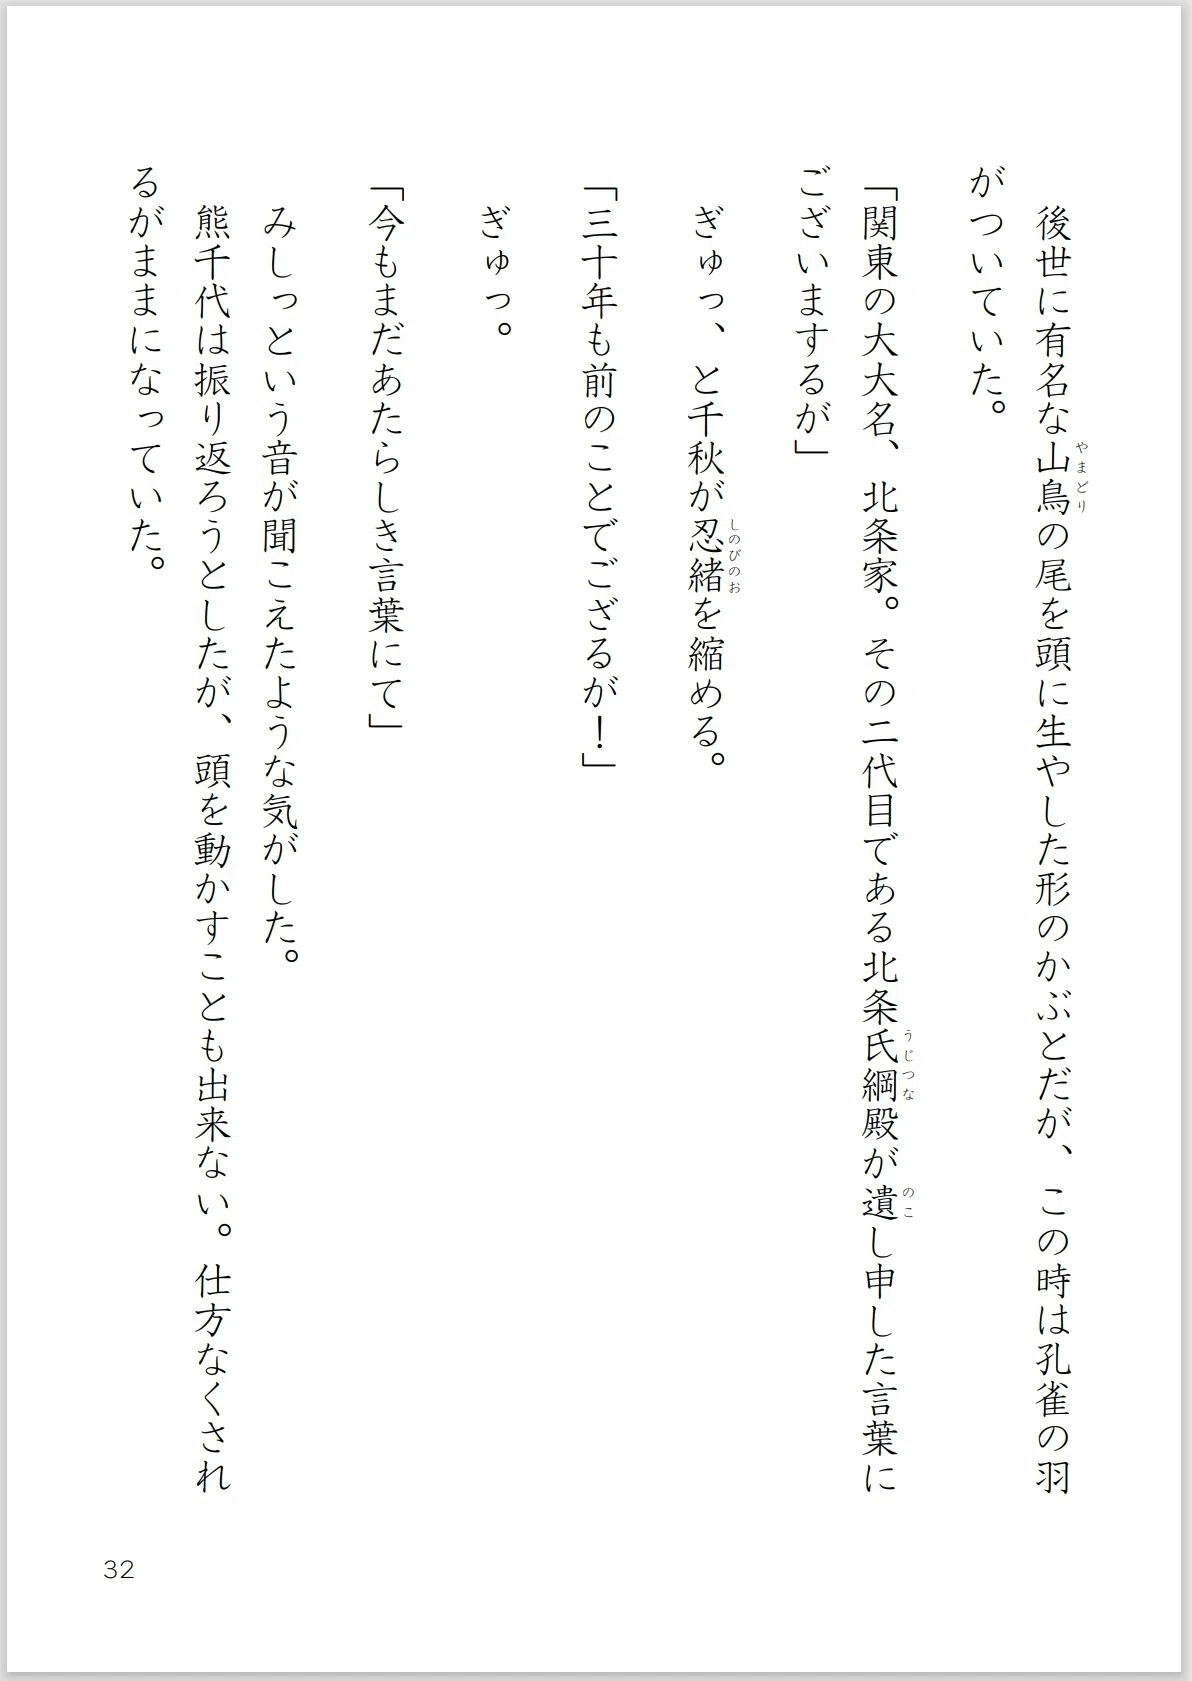 後世に有名な山鳥の尾を頭に生やした形のかぶとだが、この時は孔雀の羽
やまどり
がついていた。
「関東の大大名、北条家。その二代目である北条氏綱殿が遺し申した言葉に
うじつな
のこ
ございまするが」
ぎゅっ、と千秋が忍緒を縮める。
しのびのお
「三十年も前のことでござるが！」
ぎゅっ。
「今もまだあたらしき言葉にて」
みしっという音が聞こえたような気がした。
熊千代は振り返ろうとしたが、頭を動かすことも出来ない。仕方なくされ
るがままになっていた。
32